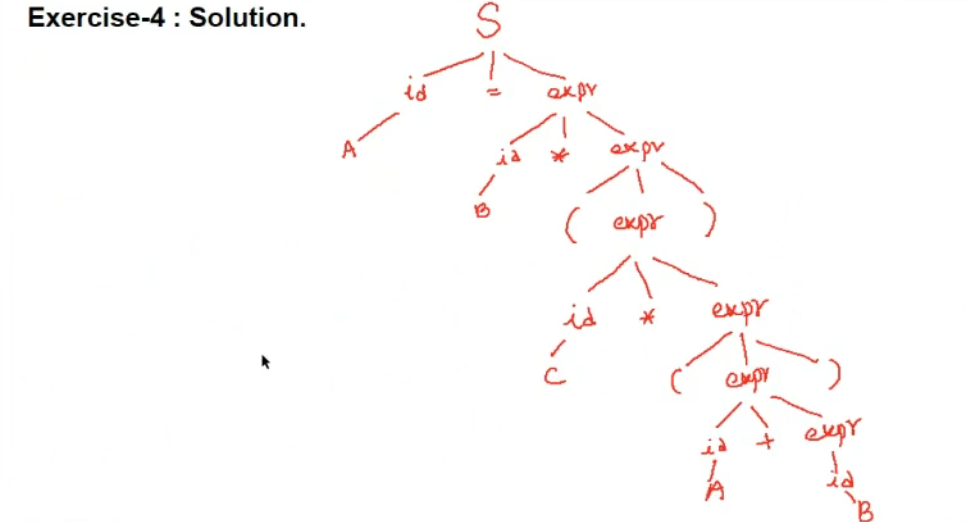 Exercise-4 : Solution.
S
id = expr
A
id * expr
B
( expr )
id * expr
C
( expr )
id + expr
A id
B